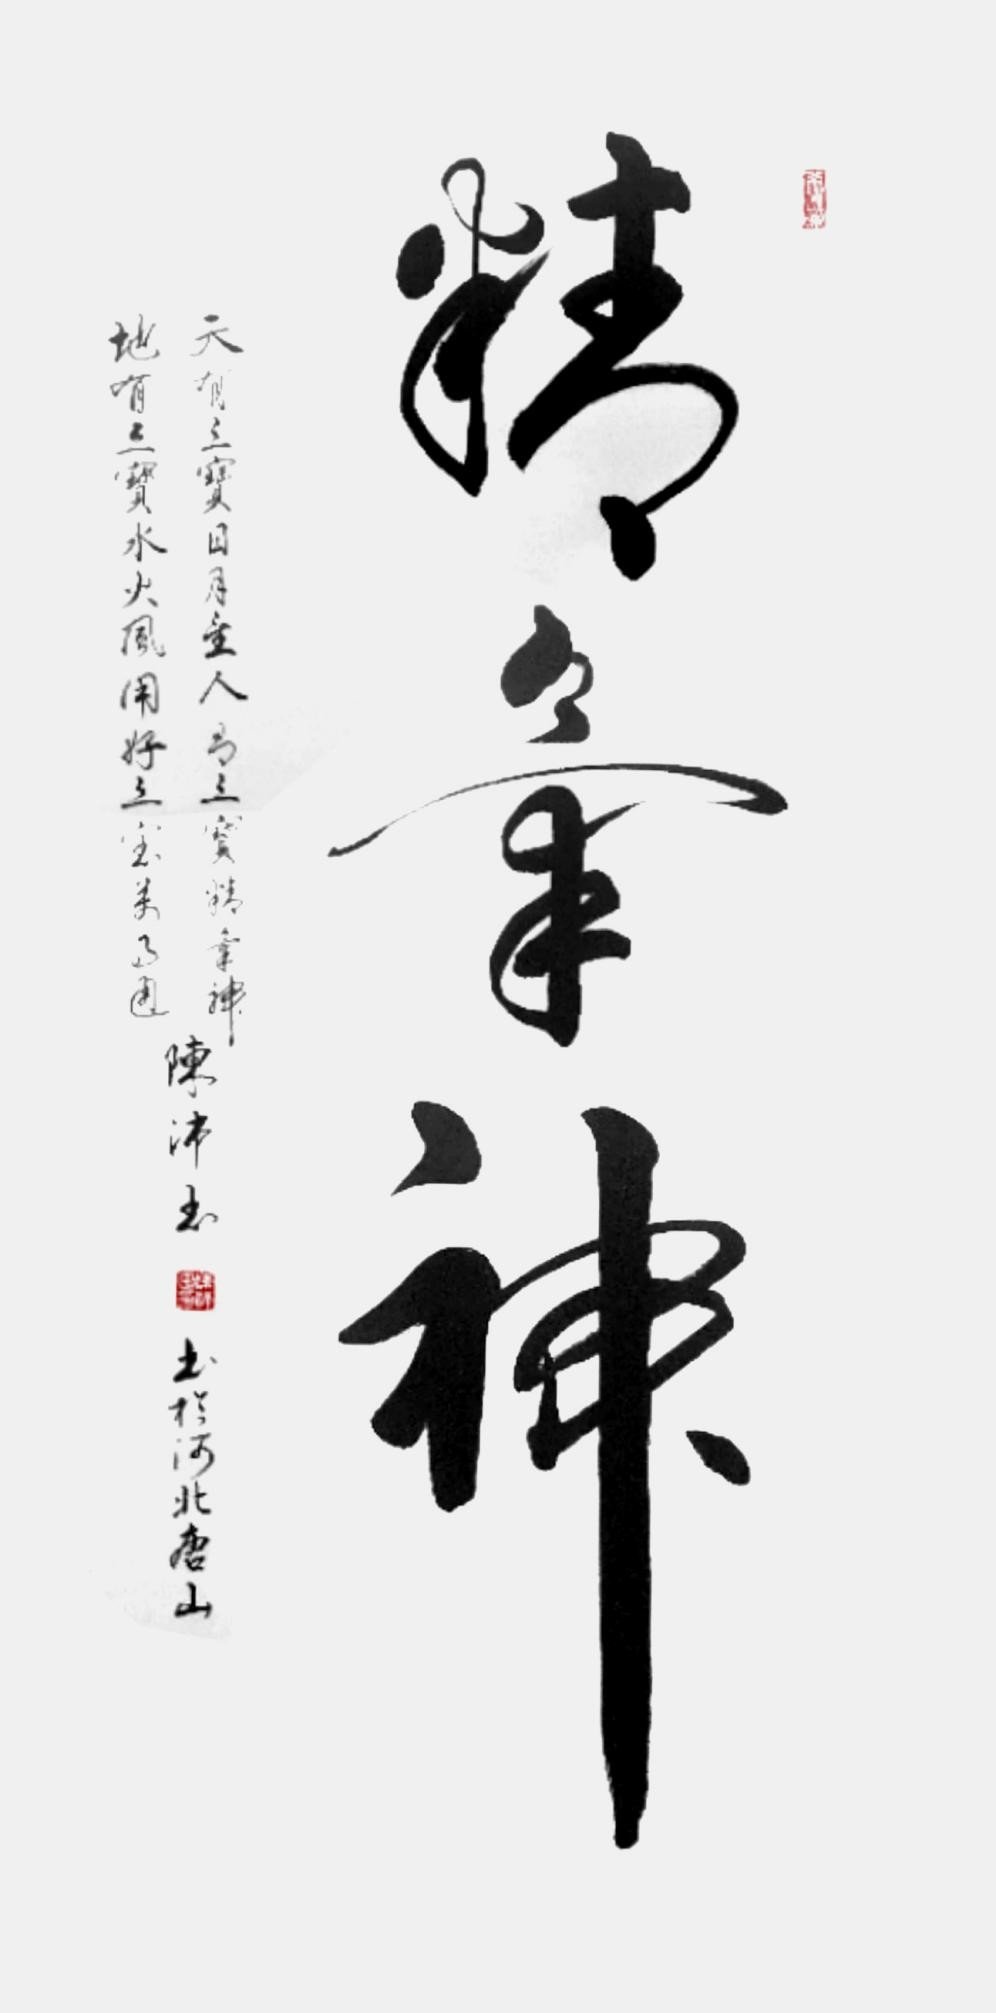 精氣神
天有三寶日月星人有三寶精氣神
地有三寶水火風用好三宝萬事通
陳沛玉
书於河北唐山